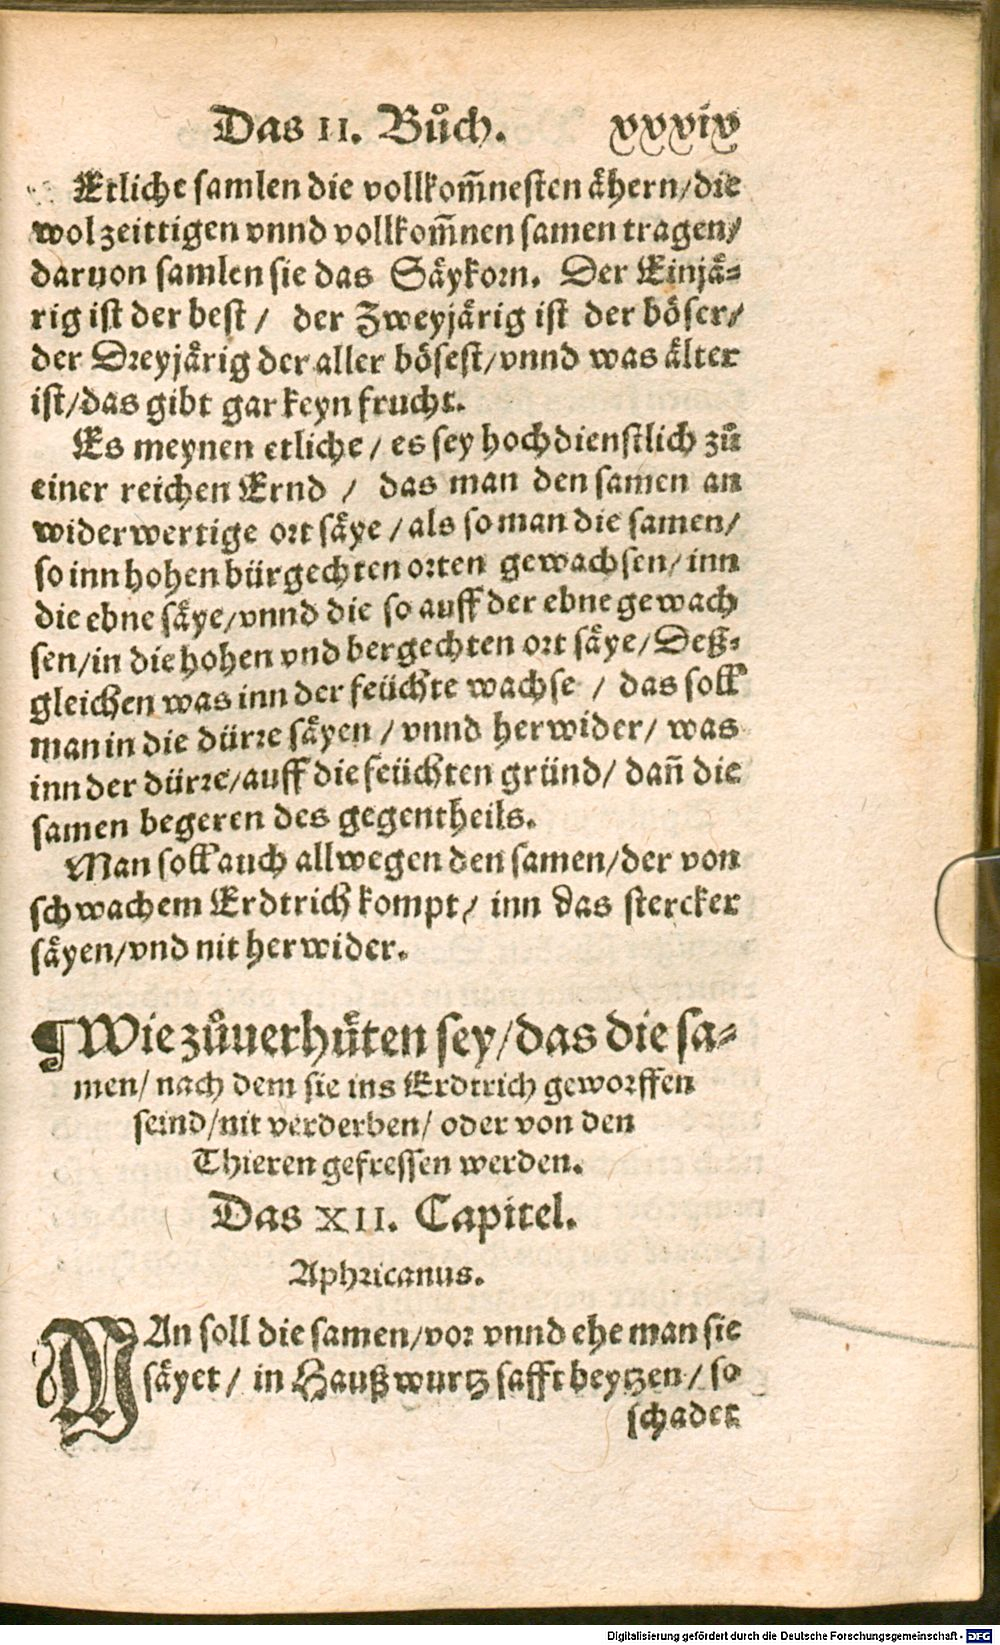 Das II. Bůch. xxxix
Etliche samlen die vollkom̃nesten ähern/die
wolzeittigen vnnd vollkom̃nen samen tragen/
daruon samlen sie das Säykorn. Der Einjä-
rig ist der best / der Zweyjärig ist der böser/
der Dreyjärig der aller bösest/vnnd was älter
ist/das gibt gar keyn frucht.
Es meynen etliche / es sey hochdienstlich zů
einer reichen Ernd / das man den samen an
widerwertige ort säye / als so man die samen/
so inn hohen bürgechten orten gewachsen/ inn
die ebne säye/vnnd die so auff der ebne gewach
sen/in die hohen vnd bergechten ort säye/ Deß-
gleichen was inn der feüchte wachse / das soll
man in die dürre säyen / vnnd herwider/ was
inn der dürre/auff die feüchten gründ/ dañ die
samen begeren des gegentheils.
Man soll auch allwegen den samen/der von
schwachem Erdtrich kompt/ inn das stercker
säyen/vnd nit herwider.
¶ Wie zůuerhüten sey/das die sa-
men/ nach dem sie ins Erdtrich geworffen
seind/nit verderben/ oder von den
Thieren gefressen werden.
Das XII. Capitel.
Aphricanus.
MAn soll die samen/vor vnnd ehe man sie
säyet / in Haußwurtz safft beytzen/ so
schadet
Digitalisierung gefördert durch die Deutsche Forschungsgemeinschaft - DFG